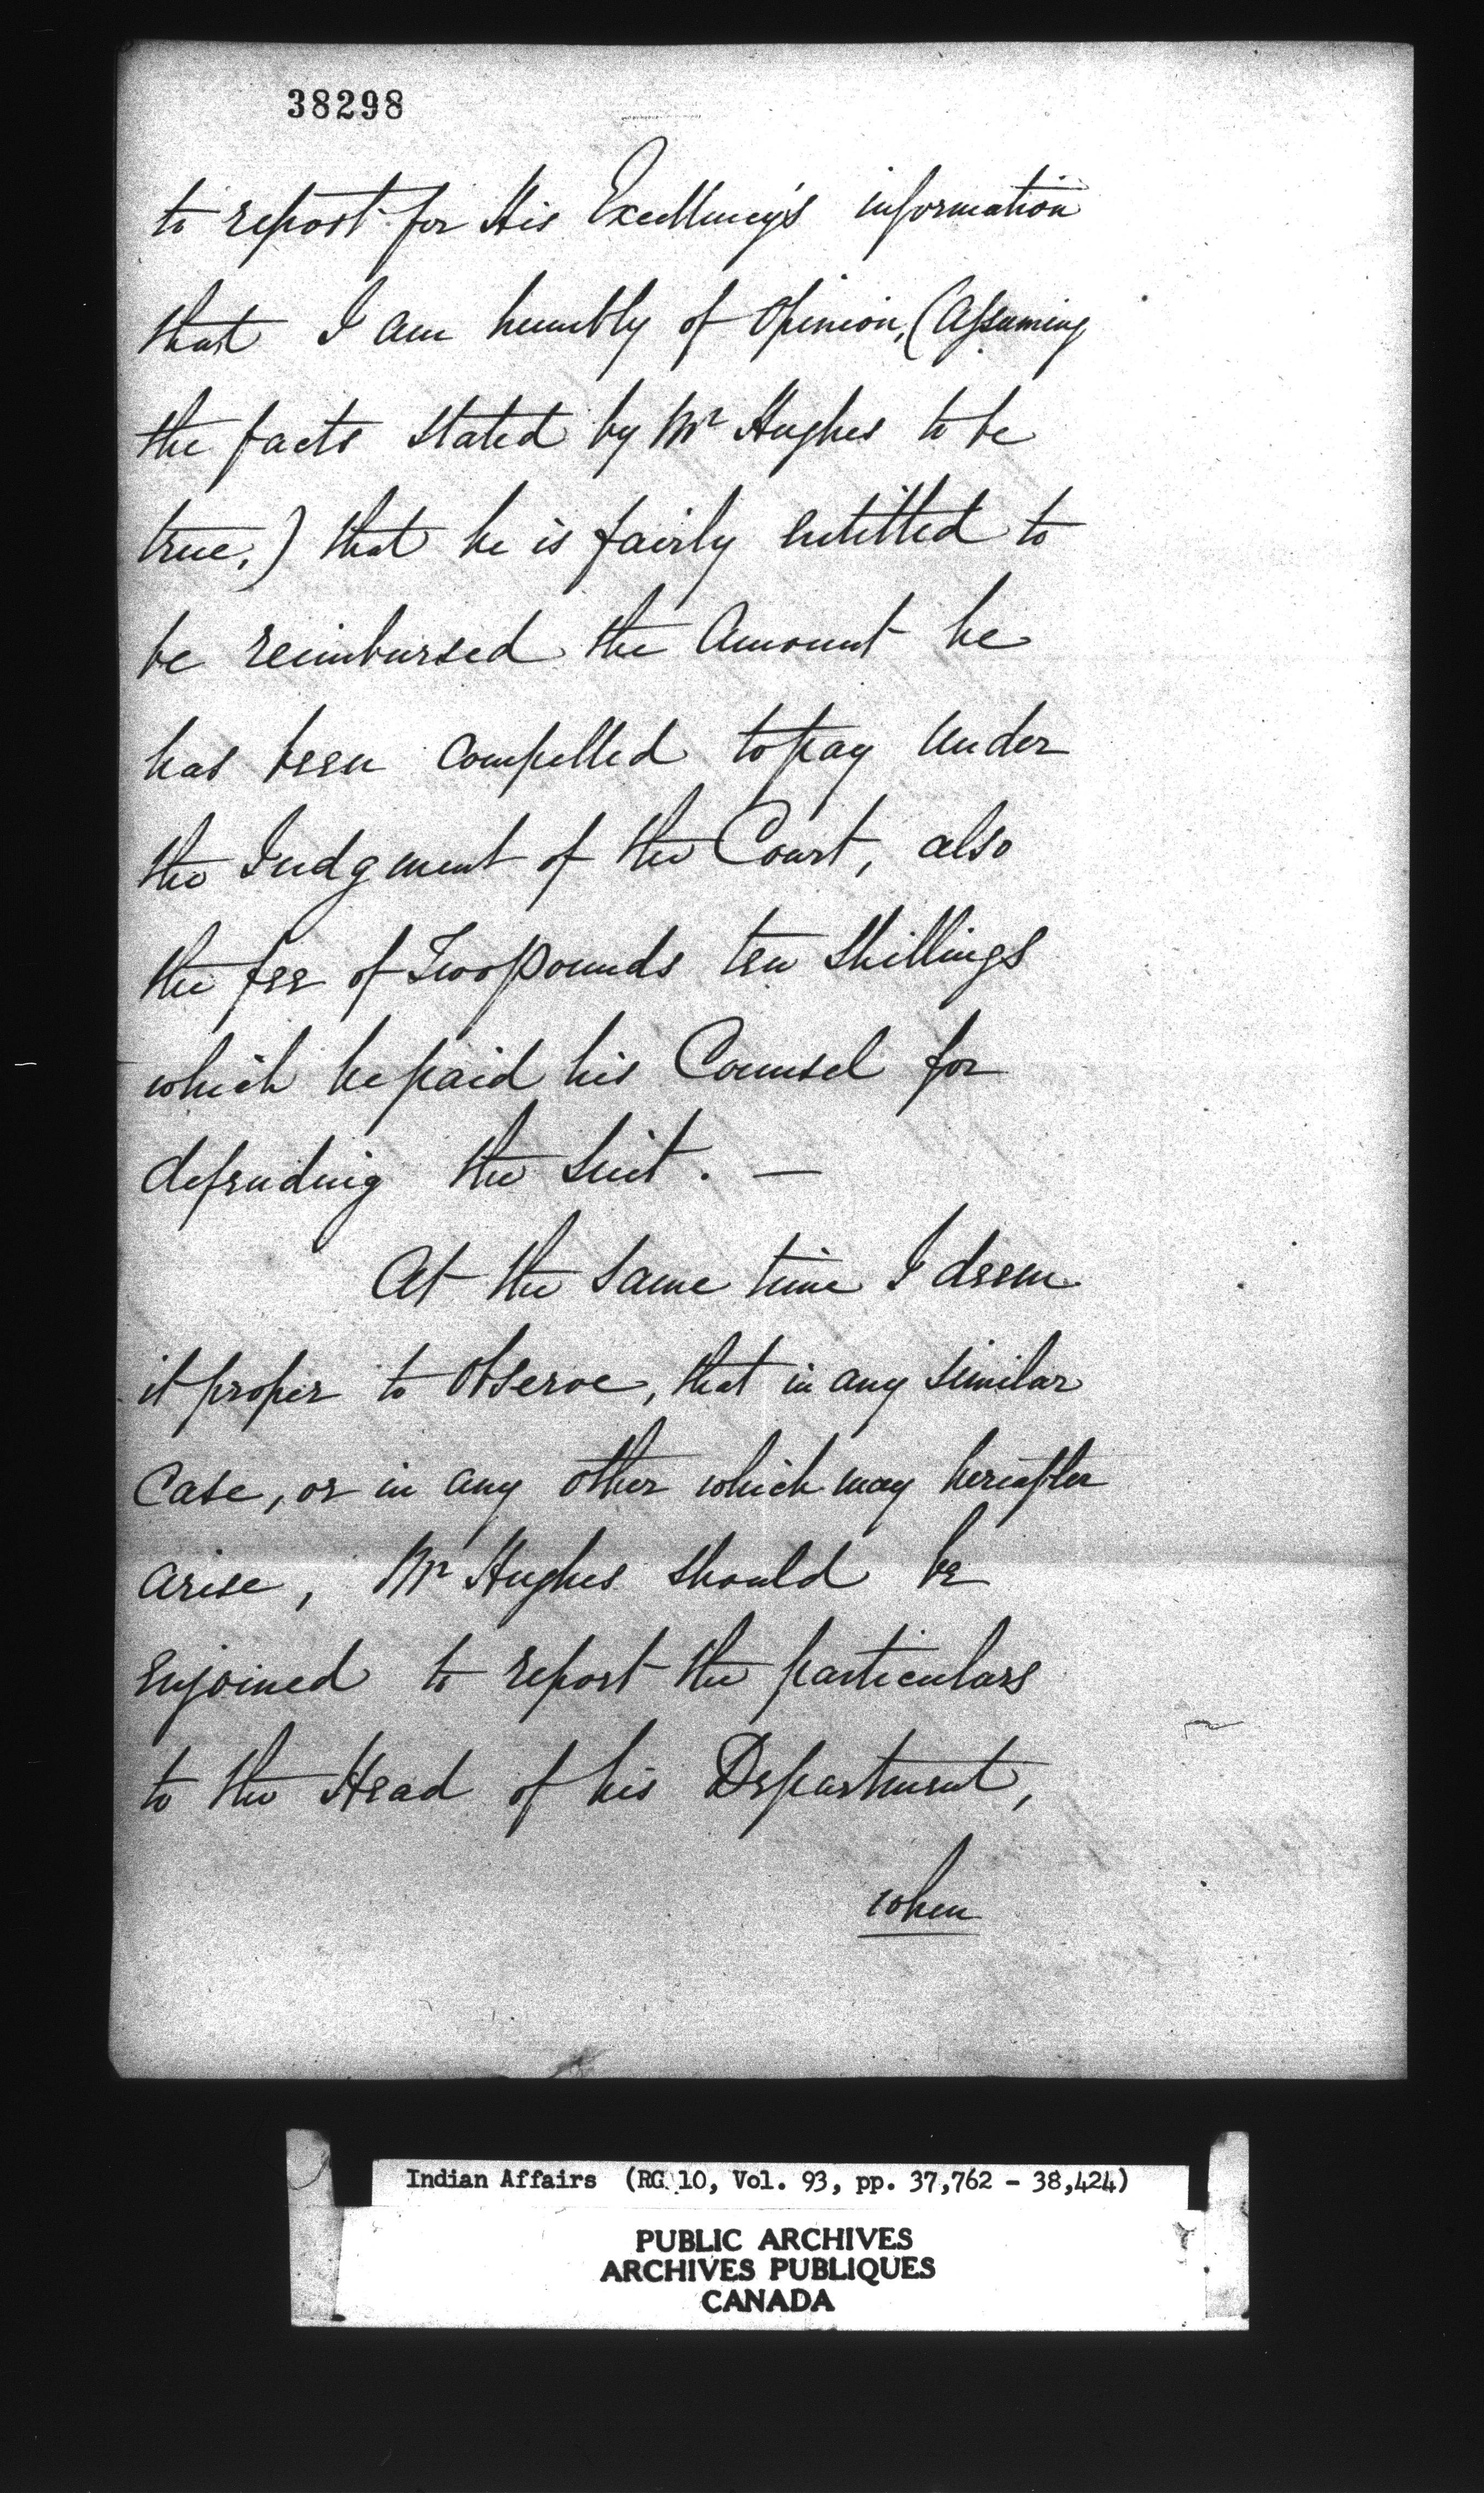 38298
to report for His Excellency's information
that I am humbly of Opinion, (Assuming
the facts stated by Mr Hughes to be
true,) that he is fairly entitled to
be reimbursed the Amount he
has been Compelled to pay Under
the Judgment of the Court, also
the fee of Two pounds ten Shillings
which he paid his Counsel for
defending the Suit. —
At the same time I deem
it proper to Observe, that in any similar
Case, or in any other which may hereafter
arise, Mr Hughes should be
enjoined to report the particulars
to the Head of his Department,
when
Indian Affairs (RG 10, Vol. 93, pp. 37,762 - 38,424)
PUBLIC ARCHIVES
ARCHIVES PUBLIQUES
CANADA